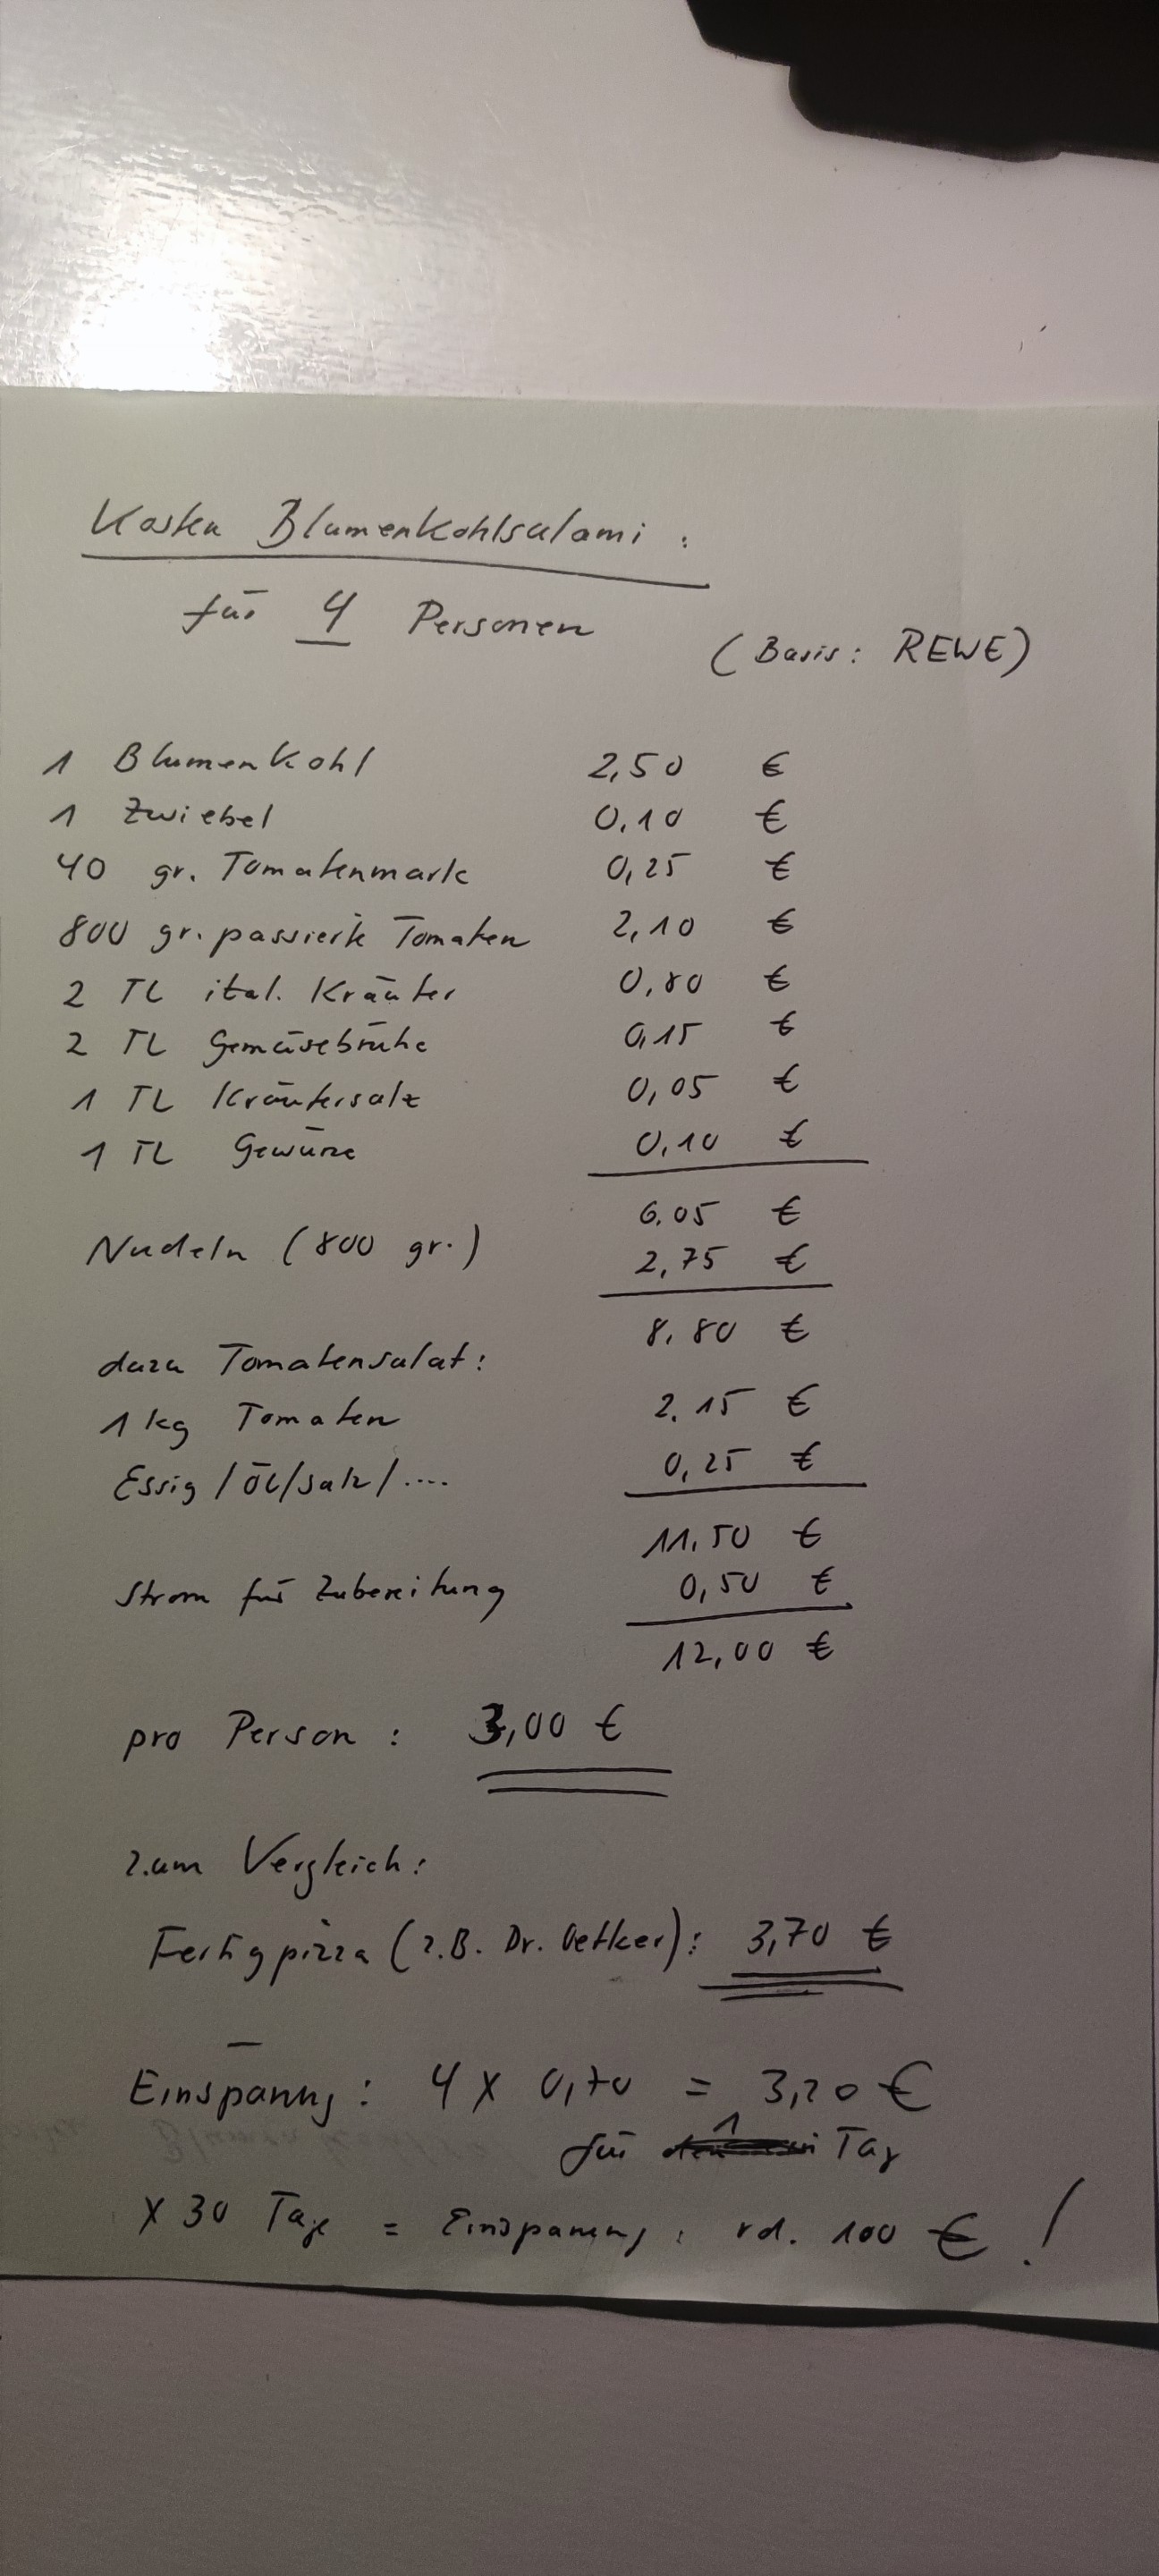 Kosten Blumenkohlsalami :
für 4 Personen
( Basis: REWE )
1 Blumenkohl 2,50 €
1 Zwiebel 0,10 €
40 gr. Tomatenmark 0,25 €
800 gr. passierte Tomaten 2,10 €
2 TL ital. Kräuter 0,80 €
2 TL Gemüsebrühe 0,15 €
1 TL Kräutersalz 0,05 €
1 TL Gewürze 0,10 €
6.05 €
Nudeln (800 gr.) 2,75 €
8.80 €
dazu Tomatensalat:
1 kg Tomaten 2.15 €
Essig / Öl / Salz / .... 0,25 €
11,50 €
Strom für Zubereitung 0,50 €
12,00 €
pro Person : 3,00 €
zum Vergleich:
Fertigpizza (z.B. Dr. Oetker): 3,70 €
Einsparung : 4 x 0,70 = 3,20 €
für 1 Tag
x 30 Tage = Einsparung : rd. 100 € !